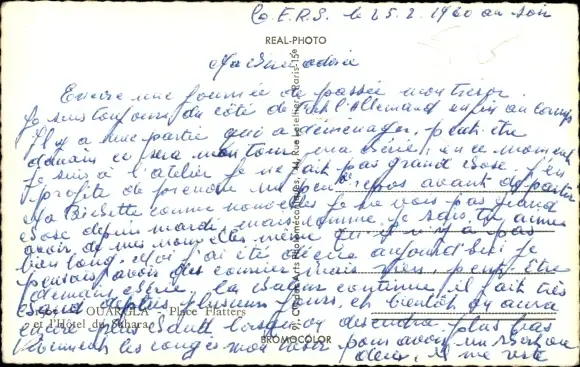 C.E.R.S. le 25.2.1960 au soir
REAL-PHOTO
Ma chérie adorée
Encore une journée de passée mon trésor.
Je suis toujours du côté de l'Allemand enfin au camp
Il y a une partie qui a déménager, peut-être
demain ce sera mon tour ma chérie, en ce moment
je suis à l'atelier je ne fait pas grand chose, j'en
profite de prendre un peu repos avant de partir
Ma Bichette comme nouvelles je ne vois pas grand
chose depuis mardi, mais comme je sais tu aimes
avoir de mes nouvelles même qu'il n'y a pas
bien long. Moi j'ai été déçue aujourd'hui je
pensais avoir des courriers mais rien, peut-être
demain chérie. La chaleur continue, il fait très
chaud depuis plusieurs jours, et bientôt y aura
OUARGLA - Place Flatters
et l'Hôtel du Sahara
encore plus lorsqu'on descendra plus bas
BROMOCOLOR
les congés mon trésor pour avoir un
il me reste